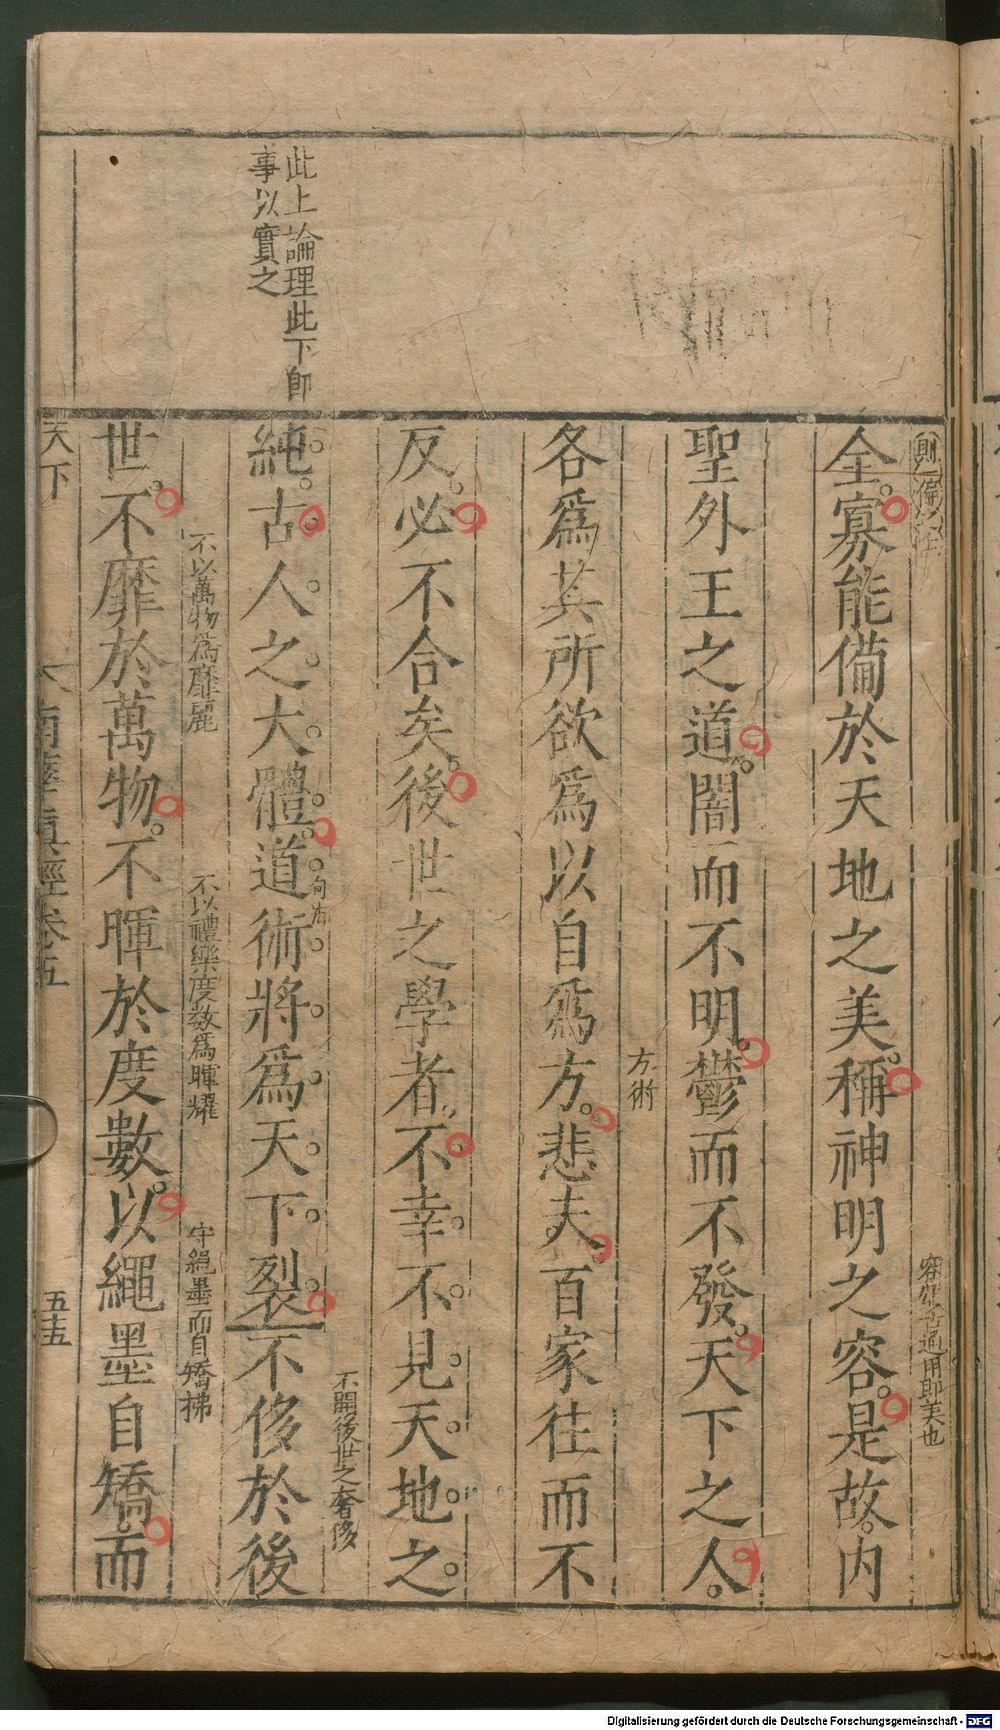 此上論理此下即
事以實之
全。寡能備於天地之美。稱神明之容。是故。內
容。通用即美也
聖外王之道。闇而不明。鬱而不發。天下之人。
方術
各爲其所欲爲以自爲方。悲夫。百家往而不
反。必不合矣。後世之學者。不幸。不見天地之。
不開後世之奢侈
純。古人之大體。道術將爲天下裂。不侈於後
句法
不以萬物爲靡麗
不以禮樂度数爲暉耀
守繩墨而自矯拂
世。不靡於萬物。不暉於度數。以繩墨自矯。而
天下
南華真經卷五
五五
Digitalisierung gefördert durch die Deutsche Forschungsgemeinschaft - DFG